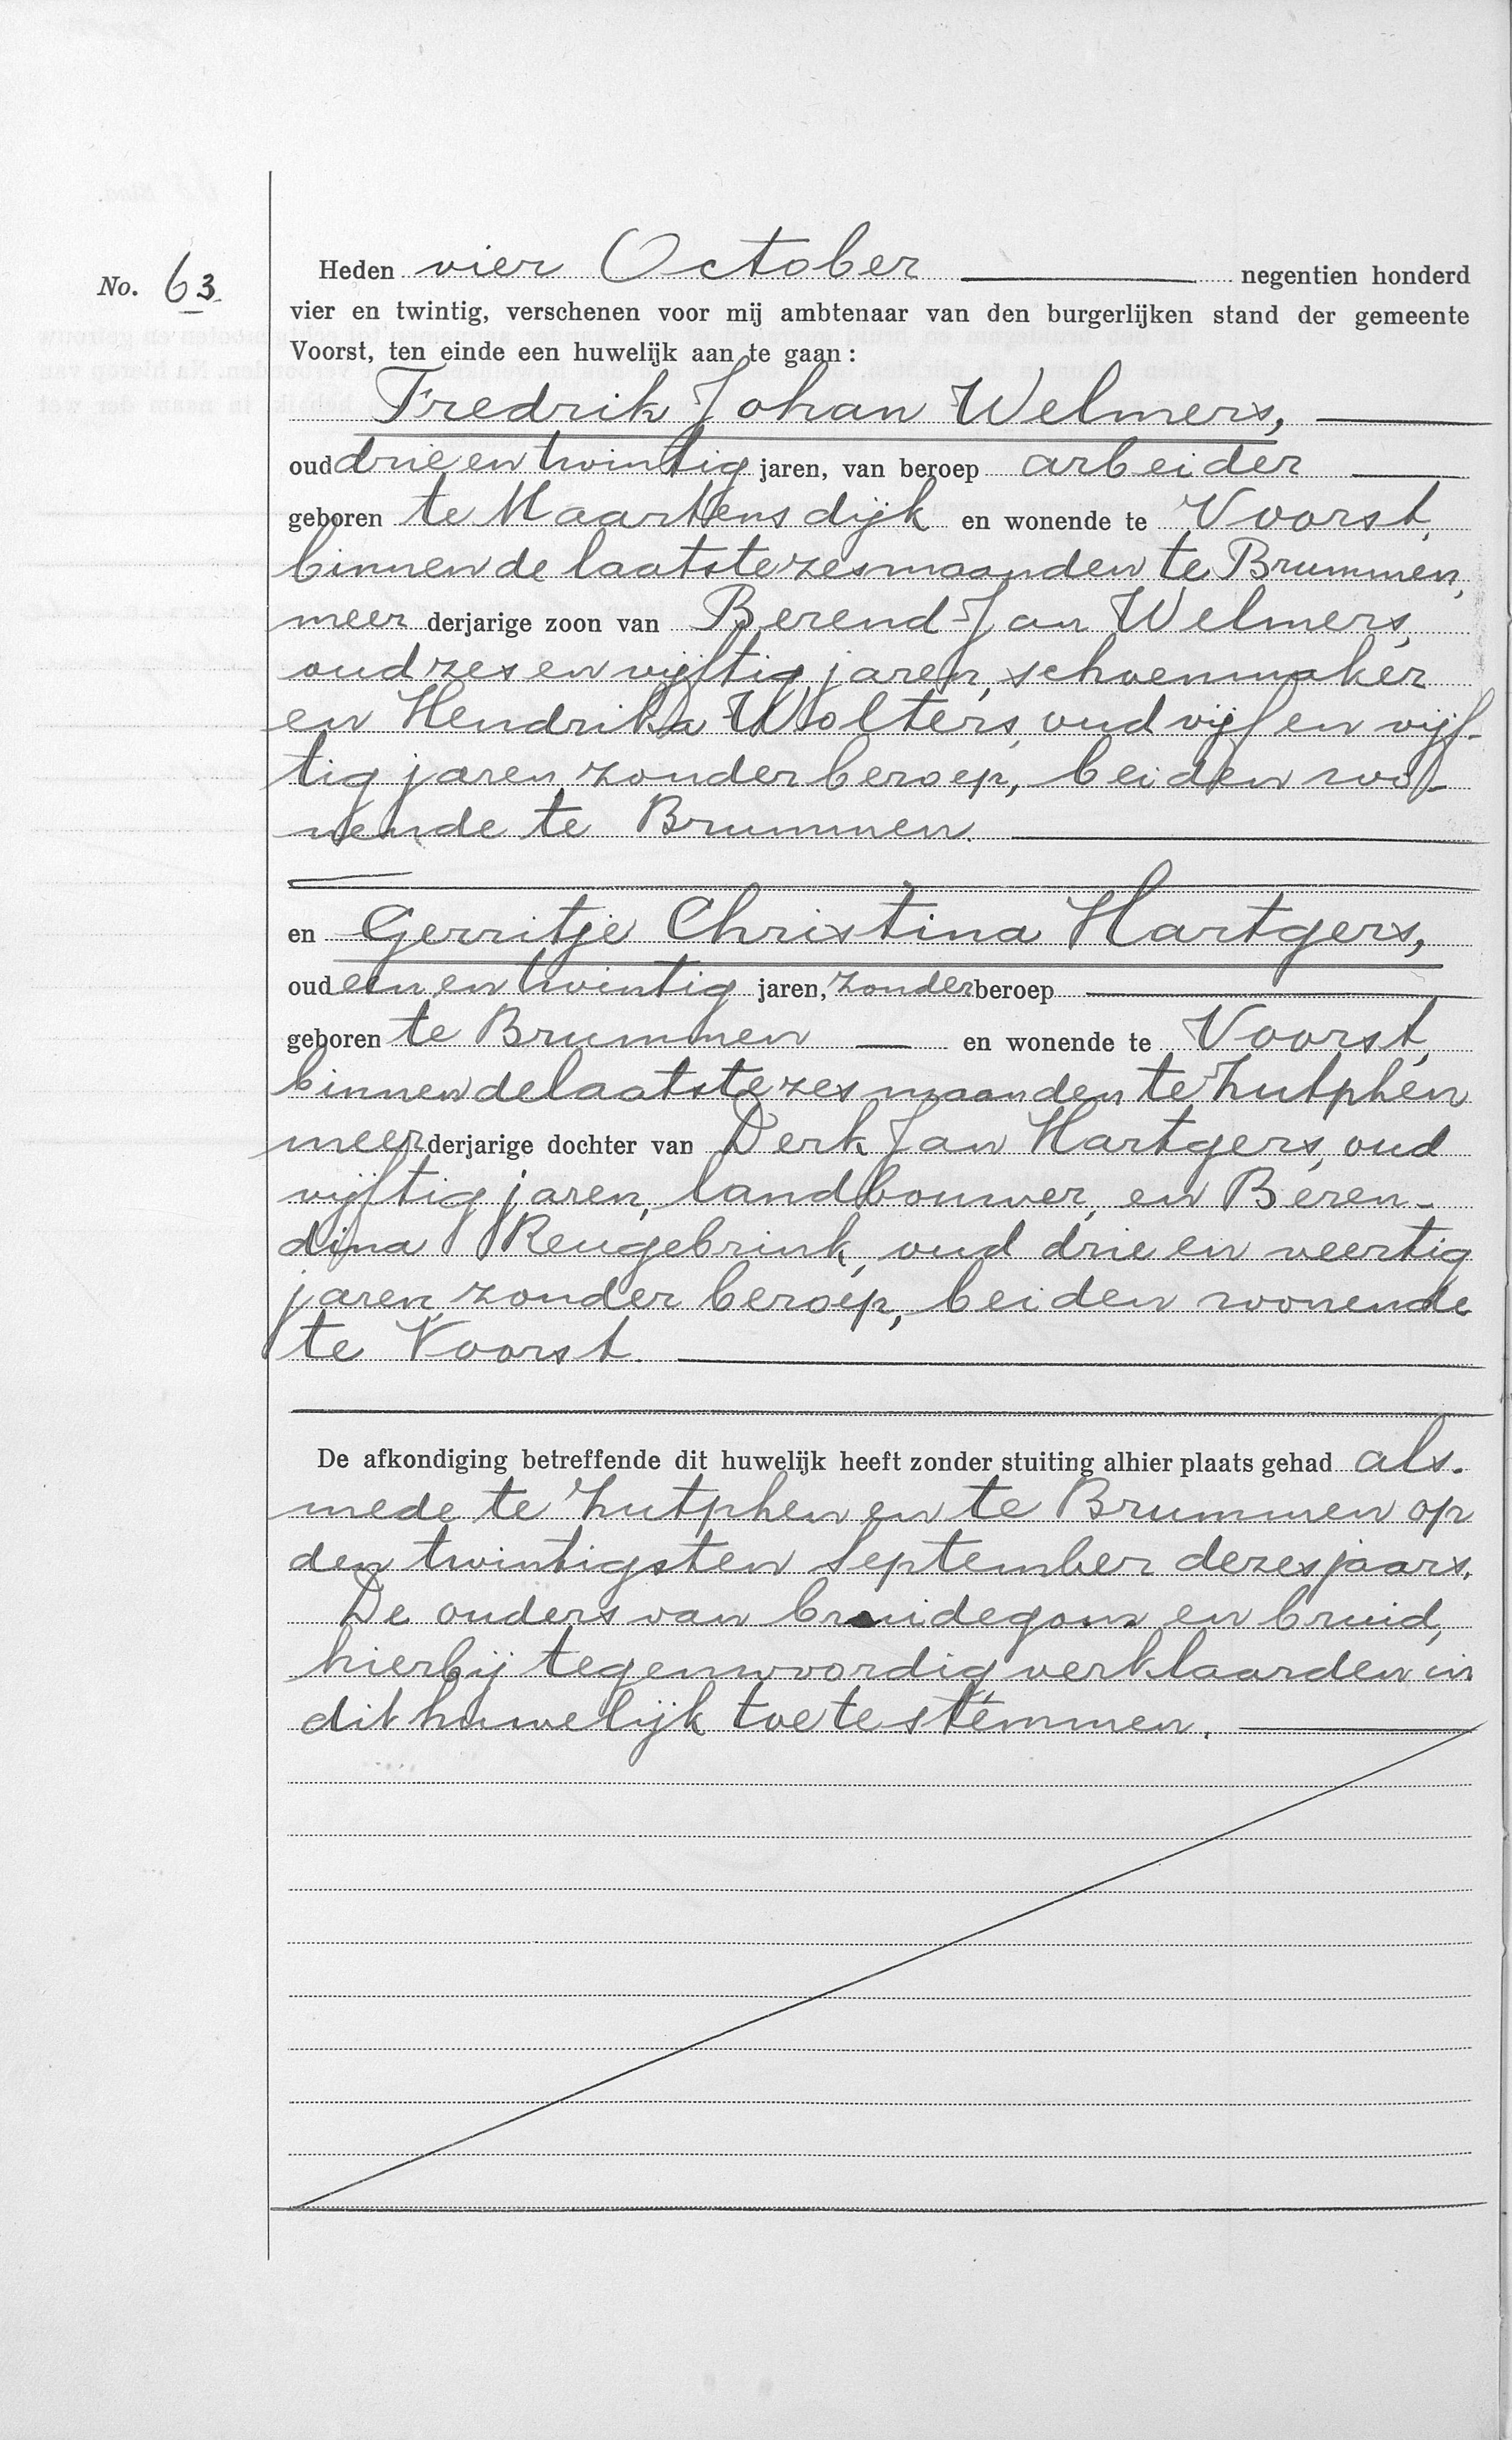 No. 63
Heden vier October negentien honderd
vier en twintig, verschenen voor mij ambtenaar van den burgerlijken stand der gemeente
Voorst, ten einde een huwelijk aan te gaan :
Fredrik Johan Welmers,
oud drie en twintig jaren, van beroep arbeider
geboren te Maartensdijk en wonende te Voorst,
binnen de laatste zes maanden te Brummen,
meerderjarige zoon van Berend Jan Welmers,
oud zes en vijftig jaren, schoenmaker
en Hendrika Wolters, oud vijf en vijf-
tig jaren, zonder beroep, beiden wo-
nende te Brummen.
en Gerritje Christina Hartgers,
oud een en twintig jaren, zonder beroep
geboren te Brummen en wonende te Voorst,
binnen de laatste zes maanden te Zutphen
meerderjarige dochter van Derk Jan Hartgers, oud
vijftig jaren, landbouwer, en Beren-
dina Reugebrink, oud drie en veertig
jaren, zonder beroep, beiden wonende
te Voorst.
De afkondiging betreffende dit huwelijk heeft zonder stuiting alhier plaats gehad als-
mede te Zutphen en te Brummen op
den twintigsten September dezes jaars.
De ouders van bruidegom en bruid,
hierbij tegenwoordig verklaarden in
dit huwelijk toe te stemmen.